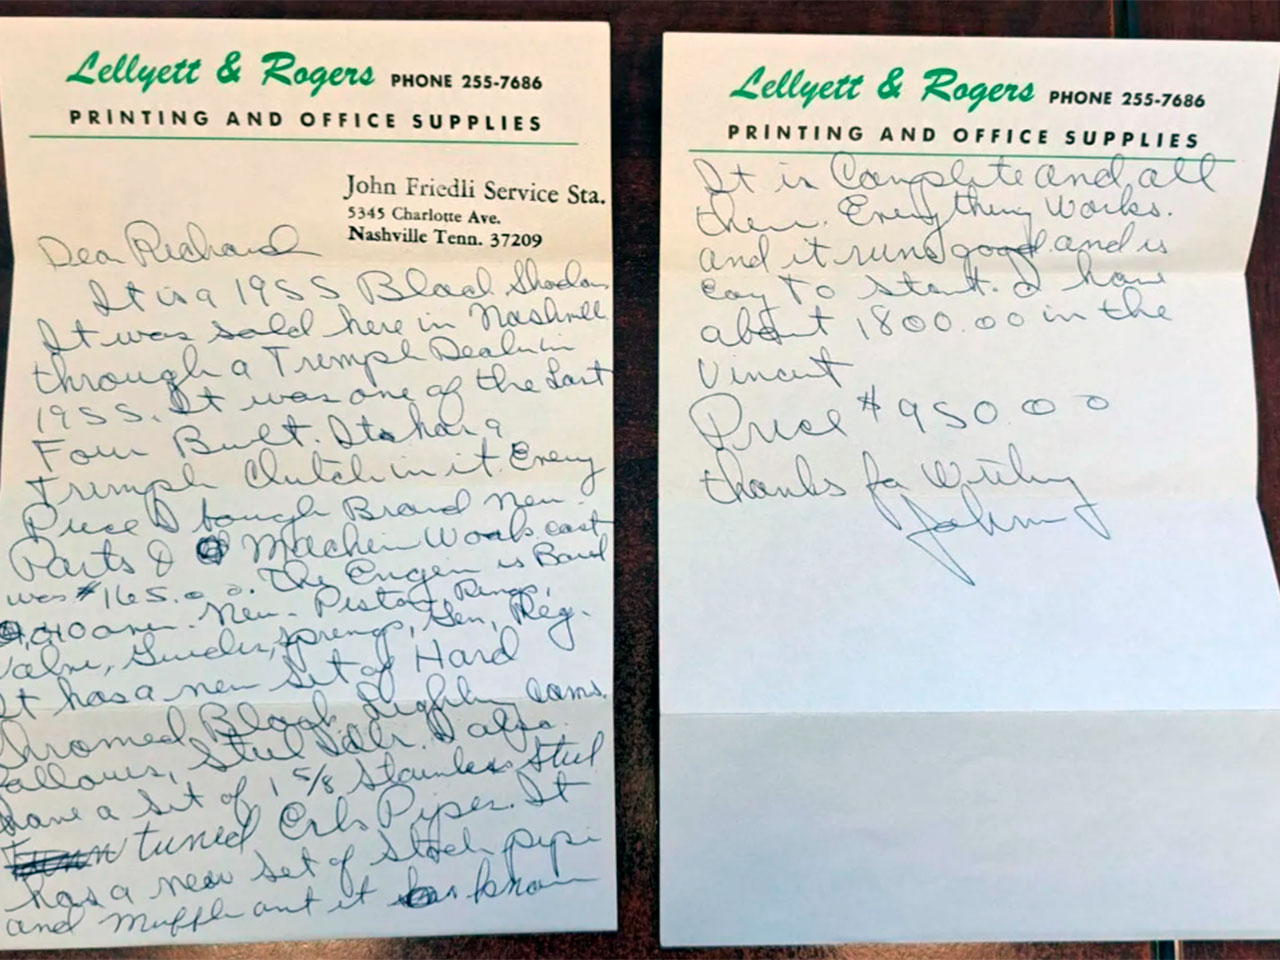 Lellyett & Rogers PHONE 255-7686
PRINTING AND OFFICE SUPPLIES
John Friedli Service Sta.
5345 Charlotte Ave.
Nashville Tenn. 37209
Dear Richard
It is a 1955 Black Shadow
It was sold here in Nashvill
through a Trumph Dealer in
1955. It was one of the Last
Four Built. It has a
Trumph Clutch in it. Every
Piece I bough Brand New
Parts & Machein Work cost
was $165.00. The Engen is Bord
.040 over. New Piston, Rings,
Valve, Guides, springs, Gen, Reg.
It has a new set of Hard
Chromed Black Lightning cams.
fallows, Steel Idlr. I also
have a set of 1 5/8 Stainless Steel
tuned Exh Pipes. It
has a new set of Stock pipe
and muffler ont it
Lellyett & Rogers PHONE 255-7686
PRINTING AND OFFICE SUPPLIES
It is Complete and all
ther. Everything Works.
and it runs good and is
easy to start. I have
about 1800.00 in the
Vincent
Price $950.00
thanks for Writing
John